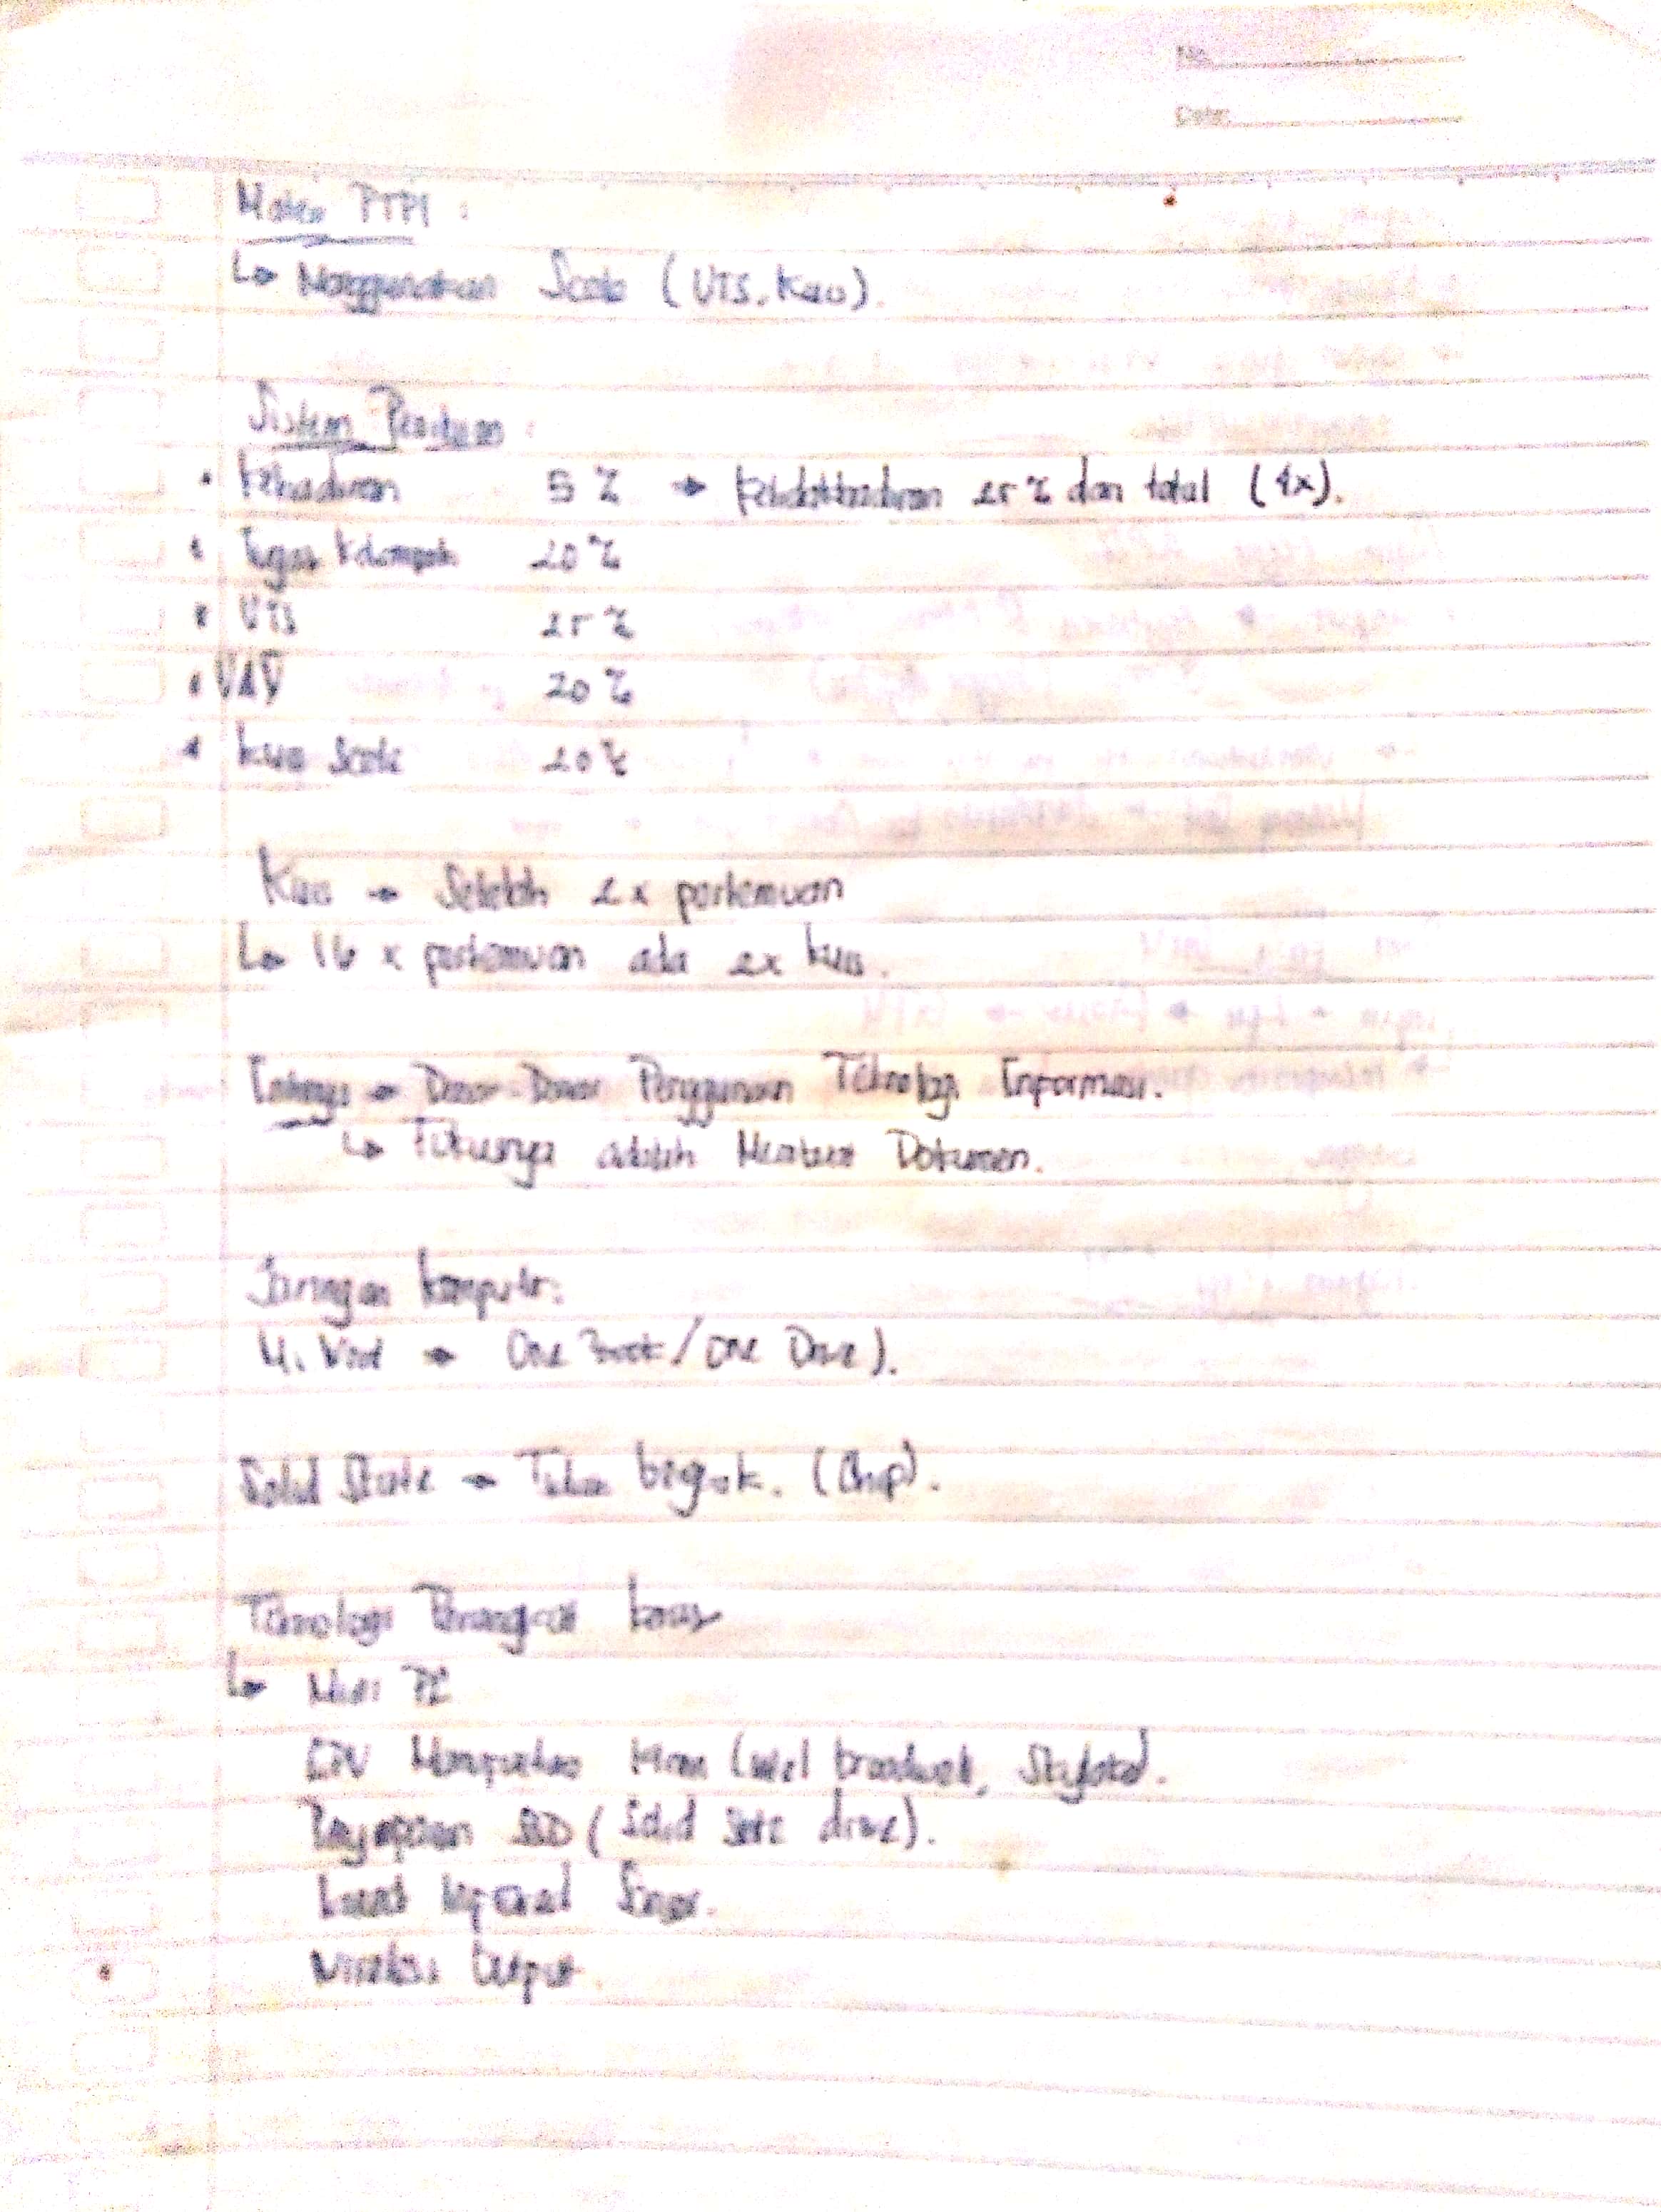 No.
Date:
Materi PTPI :
↳ Menggunakan Scele (UTS, Kuis).
Sistem Penilaian :
• Kehadiran 5 % → Ketidakhadiran 25 % dari total (4x).
• Tugas Kelompok 20 %
• UTS 25 %
• UAS 20 %
• Kuis Scele 20 %
Kuis → Setelah 2x pertemuan
↳ 16 x pertemuan ada 2x kuis.
→ Dasar-Dasar Penggunaan Teknologi Informasi.
↳ Fokusnya adalah Membuat Dokumen.
Jaringan Komputer.
→ One / One Drive).
Solid State → Tahan (Chip).
Teknologi Perangkat keras
↳ Mini PC
CPU Menggunakan (Intel broadwell, Skylake).
Penyimpanan SSD (Solid State drive).
Sensor.
Wireless Output.